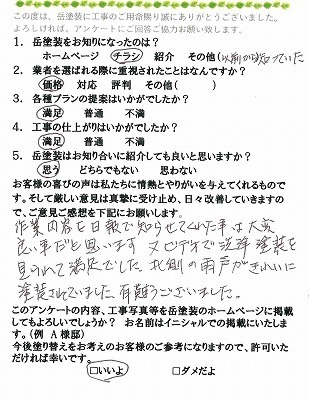 この度は、岳塗装に工事のご用命賜り誠にありがとうございました。
よろしければ、アンケートにご回答ご協力お願い致します。
1. 岳塗装をお知りになったのは?
ホームページ チラシ 紹介 その他(以前から知っていた
2. 業者を選ばれる際に重視されたことはなんですか?
価格 対応 評判 その他( )
3. 各種プランの提案はいかがでしたか?
満足 普通 不満
4. 工事の仕上がりはいかがでしたか?
満足 普通 不満
5. 岳塗装はお知り合いに紹介しても良いと思いますか?
思う どちらでもない 思わない
お客様の喜びの声は私たちに情熱とやりがいを与えてくれるもので
す。そして厳しい意見は真摯に受け止め、日々改善していきますの
で、ご意見ご感想を下記にお願いします。
作業内容を日報で知らせてくれた事は大変
良い事だと思います 又ビデオで洗浄塗装を
見られて満足でした。北側の雨戸がきれいに
塗装されていました。有難うございました。
このアンケートの内容、工事写真等を岳塗装のホームページに掲載
してもよろしいでしょうか? お名前はイニシャルでの掲載にいたしま
す。(例 A様邸)
今後塗り替えをお考えのお客様のご参考になりますので、許可いた
だければ幸いです。
□いいよ □ダメだよ